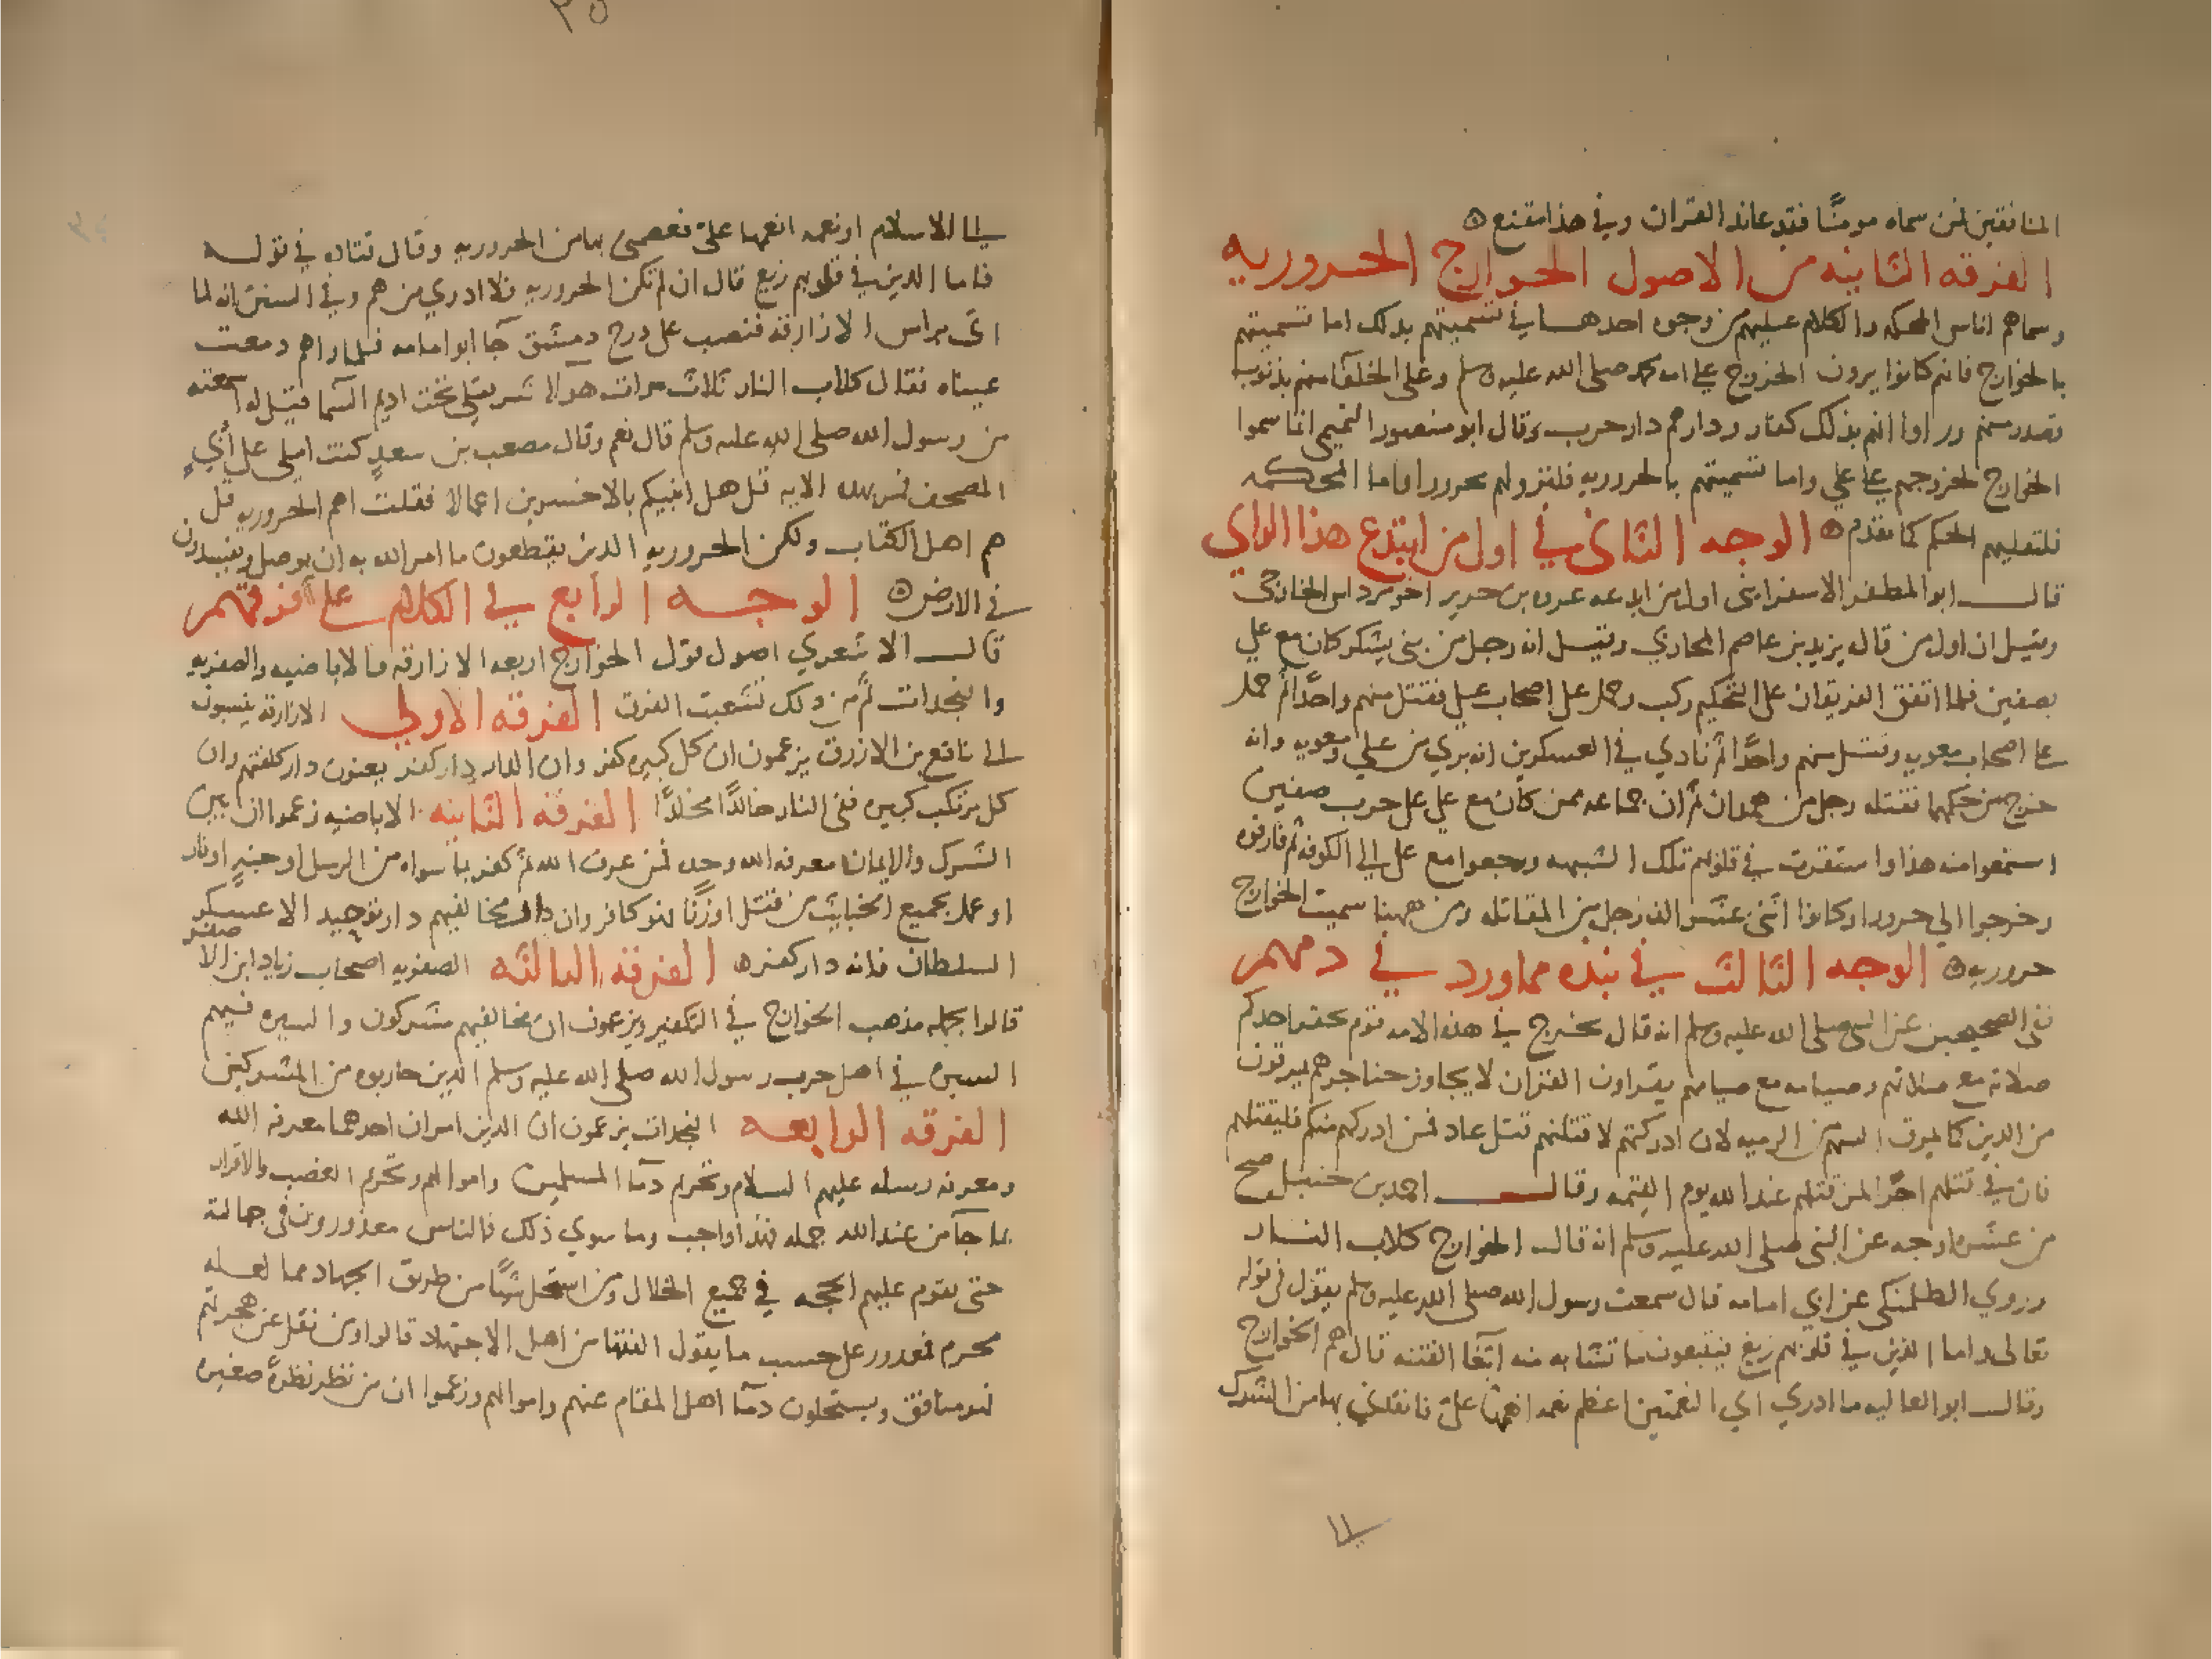 المنافقين فمن سماه مومنًا فقد عاند القران وفي هذا مقنع ه
الفرقه الثانيه من الاصول الخوارج الحروريه
وسماهم اناس المحكمه والكلام عليهم من وجوه احدها في تسميتهم بذلك اما تسميتهم
بالخوارج فانهم كانوا يرون الخروج علي امه محمد صلى الله عليه وسلم وعلى الخلفآ منهم بذنوب
تصدر منهم وراوا انهم بذلك كفار ودارهم دار حرب وقال ابو منصور التميمي انما سموا
الخوارج لخروجهم علي علي واما تسميتهم بالحروريه فلنزولهم بحرورا واما المحكمه
فلتعليهم الحكم كما تقدم ه الوجه الثاني في اول من ابتدع هذا الراي
قال ابو المظفر الاسفرايني اول من ابدعه عروه بن حدير اخو مرداس الخارجي
وقيل ان اول من قاله يزيد بن عاصم المحاربي وقيل انه رجل من بني يشكر كان مع علي
بصفين فلما اتفق الفريقان على التحكيم ركب وحمل على اصحاب علي فقتل منهم واحدًا ثم حمل
علي اصحاب معويه وقتل منهم واحدًا ثم نادي في العسكرين انه بري من علي ومعويه وانه
خرج من حكمهما فقتله رجل من همدان ثم ان جماعه ممن كان مع علي على حرب صفين
استمعوا منه هذا واستقرت في قلوبهم تلك الشبهه ورجعوا مع على الي الكوفه ثم فارقوه
وخرجوا الي حرورا وكانوا اثنى عشر الف رجل من المقاتله ومن ههنا سميت الخوارج
حروريه ه الوجه الثالث في نبذه مما ورد في ذمهم
في الصحيحين عن النبي صلى الله عليه وسلم انه قال يخرج في هذه الامه قوم يحقر احدكم
صلاته مع صلاتهم وصيامه مع صيامهم يقراون القران لا يجاوز حناجرهم يمرقون
من الدين كما يمرق السهم من الرميه لان ادركتهم لاقتلنهم قتل عاد فمن ادركهم منكم فليقتلهم
فان في قتلهم اجرًا لمن قتلهم عند الله يوم القيمه وقال احمد بن حنبل صح
من عشره اوجه عن النبي صلى الله عليه وسلم انه قال الخوارج كلاب النار
وروي الطلمنكي عن ابي امامه قال سمعت رسول الله صلى الله عليه وسلم يقول في قوله
تعالى فاما الذين في قلوبهم زيغ فيتبعون ما تشابه منه ابتغا الفتنه قال هم الخوارج
وقال ابو العاليه ما ادري اي النعمتين اعظم نعمه انعمها علي فانقذني بها من الشرك
الي الاسلام او نعمه انعمها علي فعصمني بها من الحروريه وقال قتاده في قوله
فاما الذين في قلوبهم زيغ قال ان لم تكن الحروريه فلا ادري من هم وفي السنن انه لما
اتى براس الازارقه فنصب على درج دمشق جآ ابو امامه فلما راهم دمعت
عيناه فقال كلاب النار ثلاث مرات هولا شر قتلى تحت اديم السما فقيل له اسمعته
من رسول الله صلى الله عليه وسلم قال نعم وقال مصعب بن سعد كنت املي على أبي
المصحف الايه قل هل انبيكم بالاخسرين اعمالا فقلت اهم الحروريه قال
هم اهل الكتاب ولكن الحروريه الذين يقطعون ما امر الله به ان يوصل ويفسدون
في الارض ه الوجه الرابع في الكلام علي فرقهم
قال الاشعري اصول قول الخوارج اربعه الازارقه والاباضيه والصفريه
والنجدات ثم من ذلك تشعبت الفرق الفرقه الاولي الازارقه ينسبون
الي نافع بن الازرق يزعمون ان كل كبيره كفر وان الدار دار كفر يعنون دار كلفتهم وان
كل مرتكب كبيره ففي النار خالدًا مخلدًا الفرقه الثانيه الاباضيه زعموا ان بين
الشرك والايمان معرفه الله وحده فمن عرف الله ثم كفر بما سواه من الرسل او جنه او نار
او عمل بجميع الخبايث من قتل او زنًا فهو كافر وان دار مخالفيهم دار توحيد الا عسكر
السلطان فانه دار كفر ه الفرقه الثالثه الصفريه اصحاب زياد ابن الاصفر
قالوا بجمله مذهب الخوارج في التكفير ويزعمون ان مخالفيهم مشركون والسيره فيهم
السيره في اهل حرب رسول الله صلى الله عليه وسلم الذين حاربوه من المشركين
الفرقه الرابعه النجدات يزعمون ان الدين امران احدهما معرفه الله
ومعرفه رسله عليهم السلام وتحريم دمآ المسلمين واموالهم وتحريم الغصب والاقرار
بما جآ من عند الله جمله فهذا واجب وما سوي ذلك فالناس معذورون في جهالته
حتى تقوم عليهم الحجه في جميع الحلال ومن استحل شيًا من طريق الاجتهاد مما لعله
محرم فمعذور على حسب ما يقول الفقها من اهل الاجتهاد قالوا ومن نقل عن هجرتهم
فهو منافق ويستحلون دمآ اهل المقام عنهم واموالهم وزعموا ان من نظر نظرةً صغيره